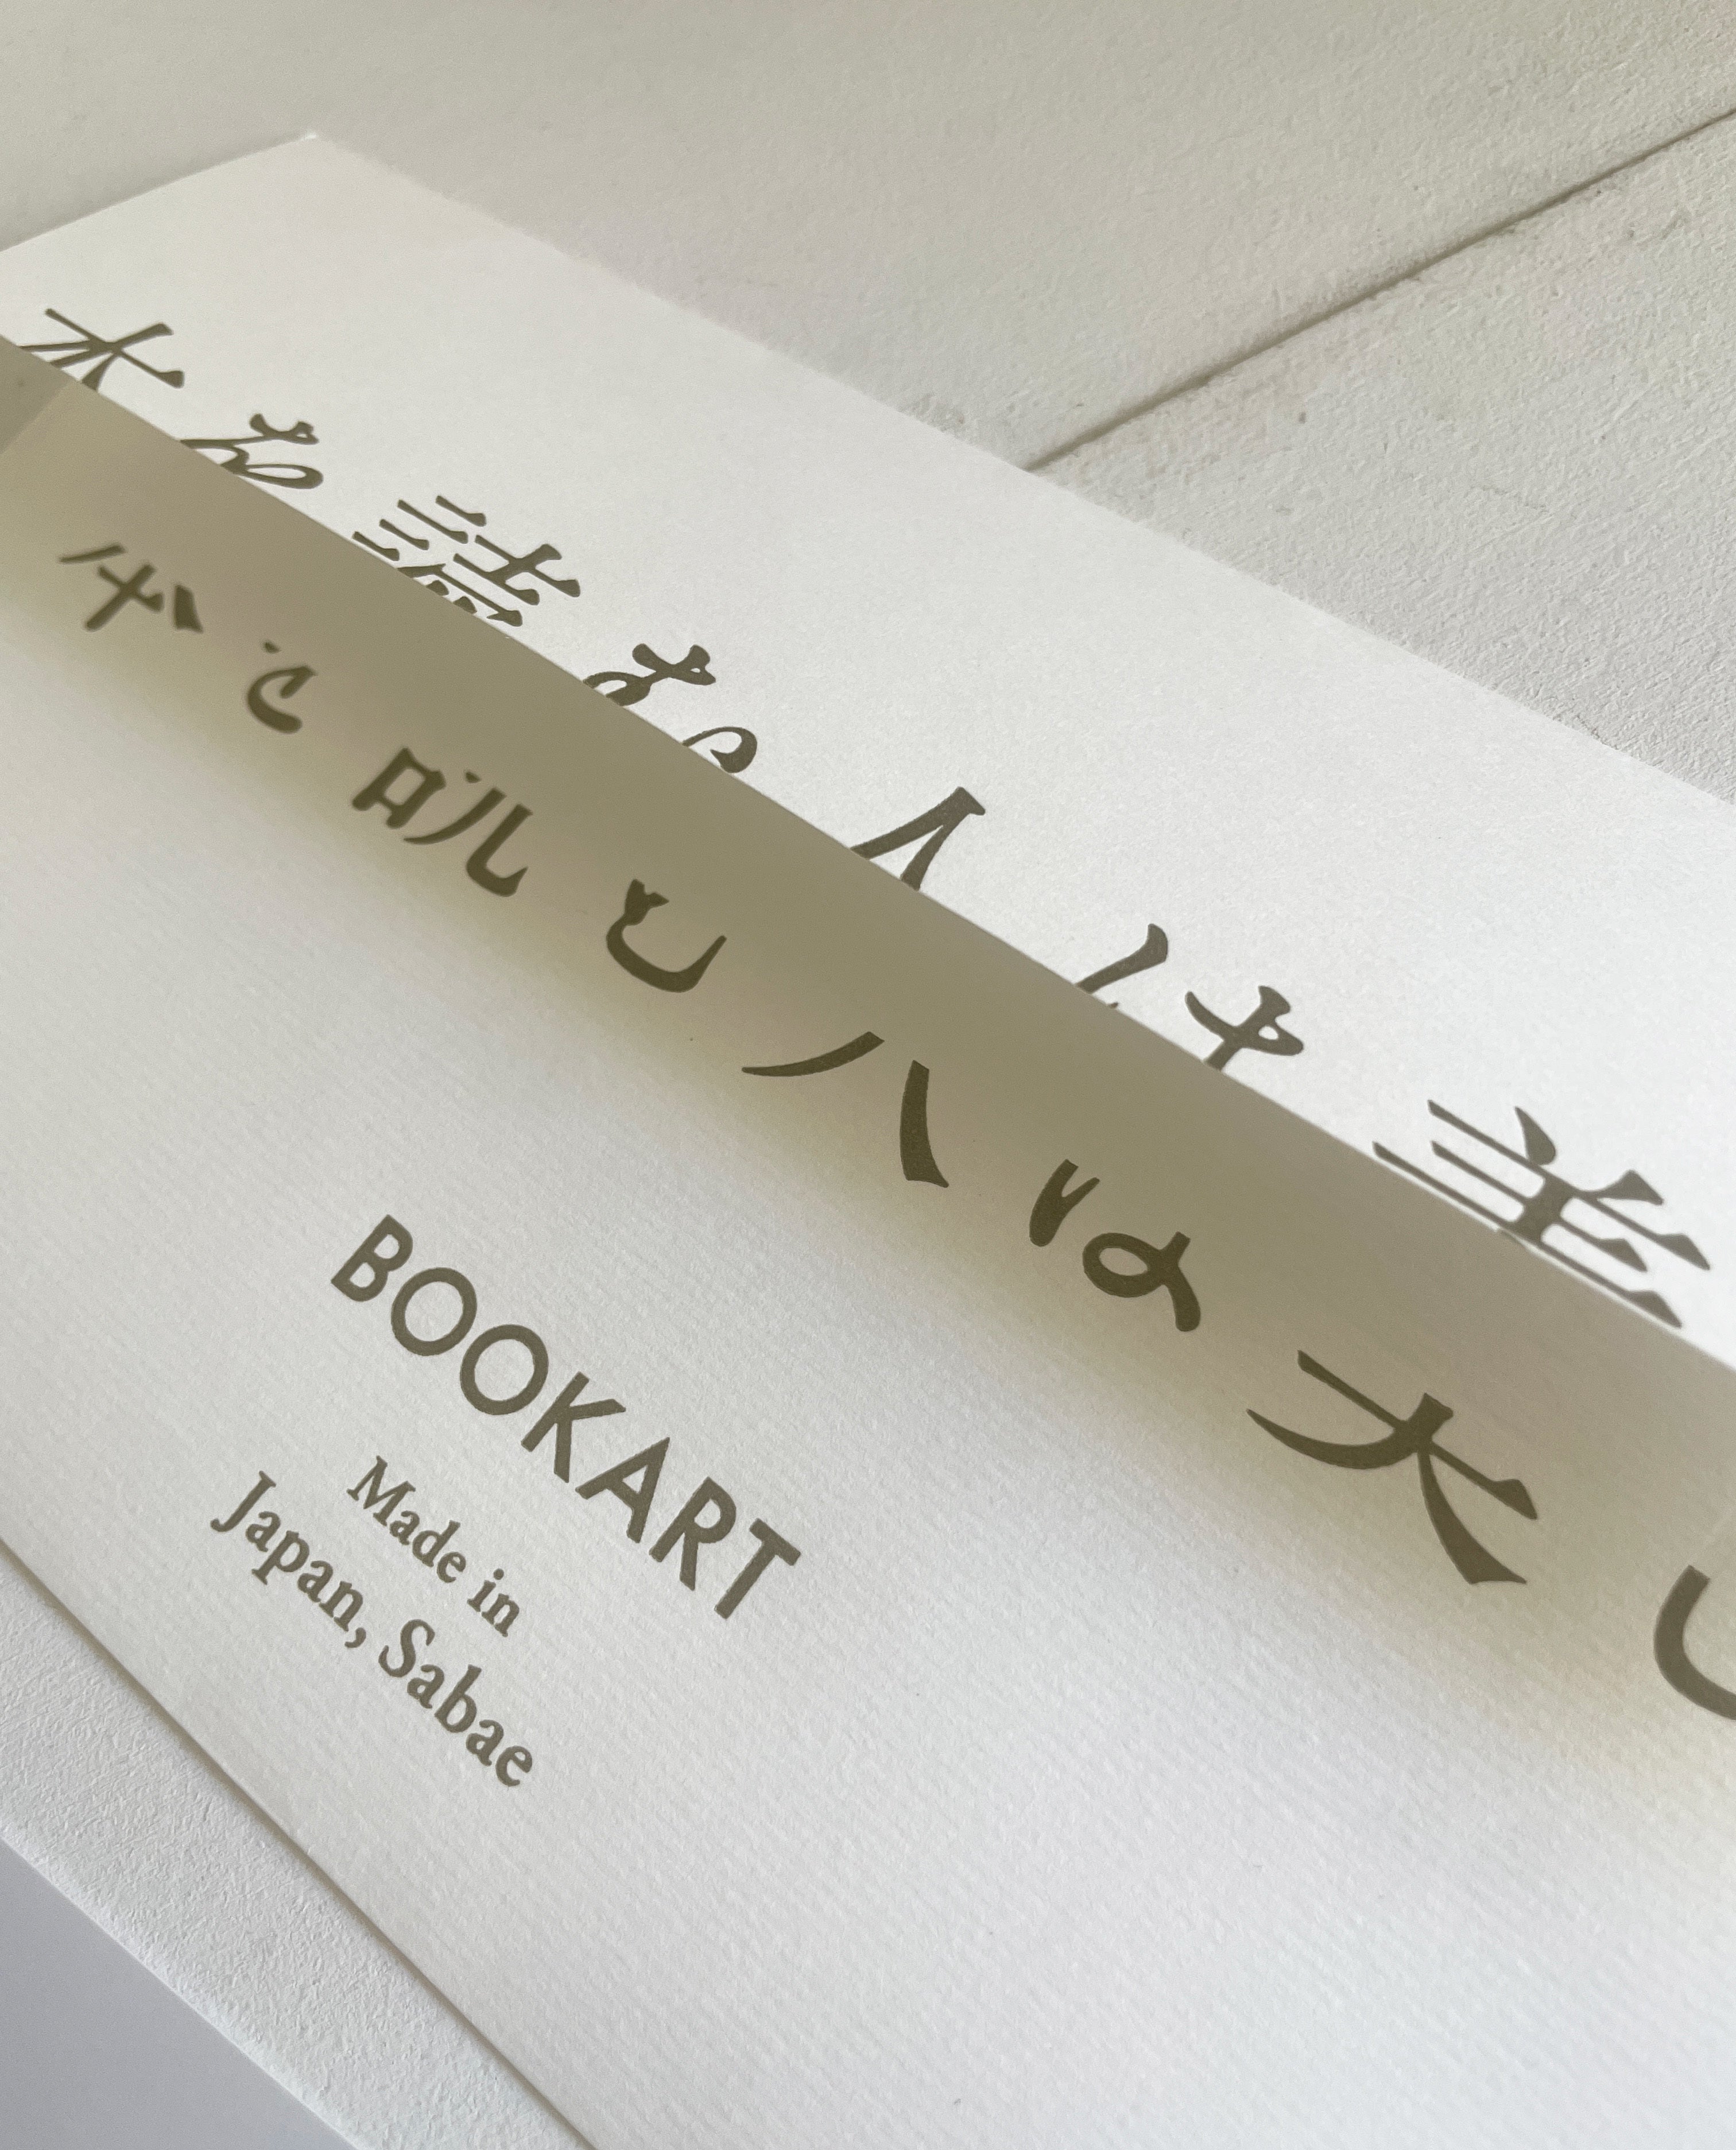 本を読む人は美し
BOOKART
Made in
Japan, Sabae